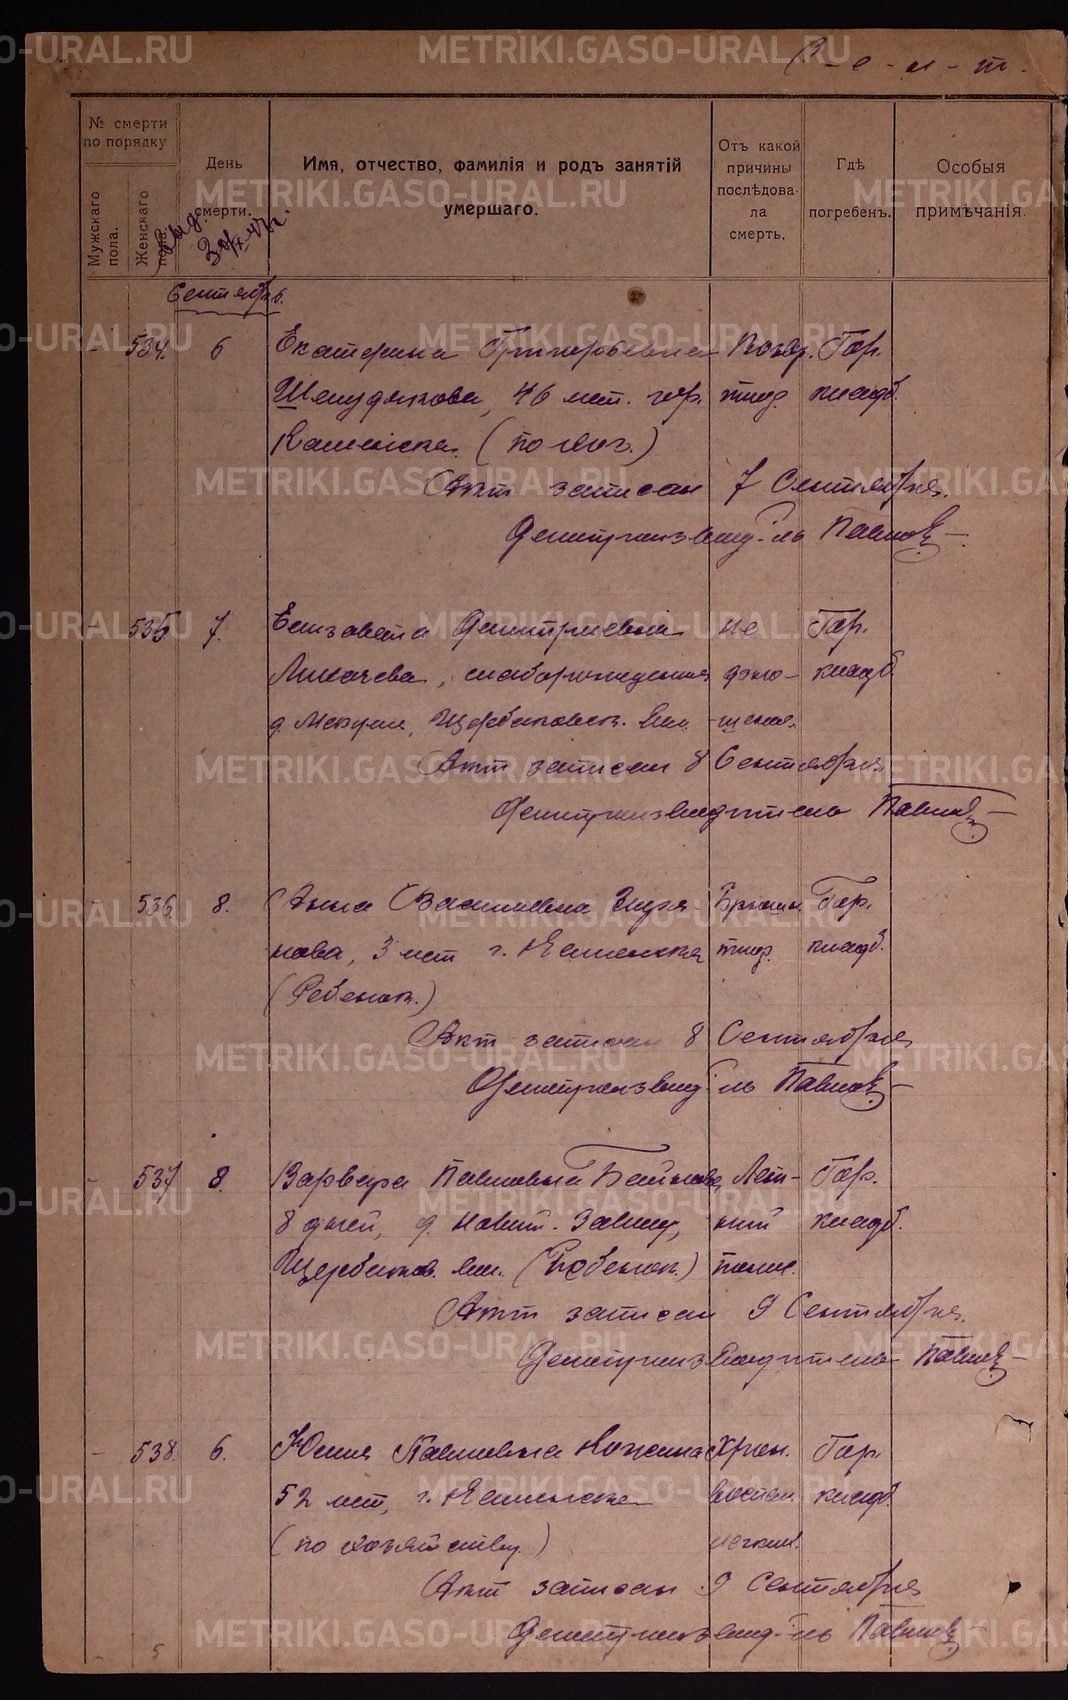 С-е-н-т-
№ смерти по порядку
Мужскаго пола.
Женскаго пола.
День смерти.
Имя, отчество, фамилія и родъ занятій умершаго.
Отъ какой причины послѣдовала смерть.
Гдѣ погребенъ.
Особыя примѣчанія.
Сентябрь.
- 534. 6 Екатерина Григорьевна Возвр. Гор.
Шелудякова, 46 лет. гор. тиф. кладб.
Каменска. (по хоз.)
Акт записан 7 Сентября.
Делопроизвод-ль Павлов
- 535 7. Елизавета Дмитриевна не Гор.
Лихачева, слаборожденная доно- кладб.
д. Щербаковск. вол. -шеная.
Акт записан 8 Сентября
Делопроизводитель Павлов
- 536 8. Анна Васильевна Брюшн. Гор.
нова, 3 лет г. Каменска тиф. кладб.
(Ребенок.)
Акт записан 8 Сентября
Делопроизвод-ль Павлов
- 537 8. Варвара Павловна Байнова, Лет- Гор.
8 дней, д. Новый-Завод, ний кладб.
Щербаков. вол. (Ребенок.) понос.
Акт записан 9 Сентября.
Делопроизводитель Павлов
- 538. 6. Юлия Павловна Хрон. Гор.
52 лет, г. Каменска воспал. кладб.
(по хозяйству.) легких.
Акт записан 9 Сентября
Делопроизвод-ль Павлов
METRIKI.GASO-URAL.RU